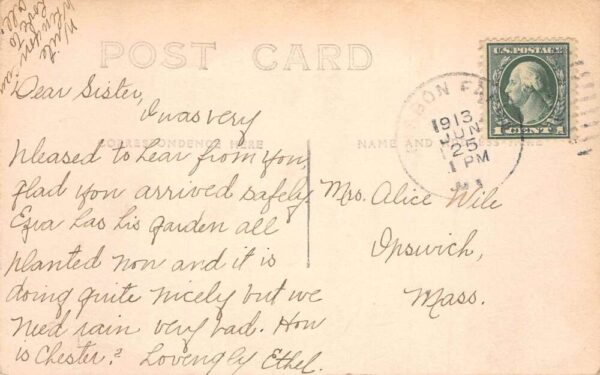 Write
when you
Love to
all.
POST CARD
Dear Sister,
I was very
CORRESPONDENCE HERE
pleased to hear from you,
glad you arrived safely.
Ezra has his garden all
planted now and it is
doing quite nicely but we
need rain very bad. How
is Chester? Lovengly Ethel.
U.S. POSTAGE
1 CENT 1
1913
JUN
25
1 PM
NAME AND ADDRESS HERE
Mrs. Alice Wile
Ipswich,
Mass.